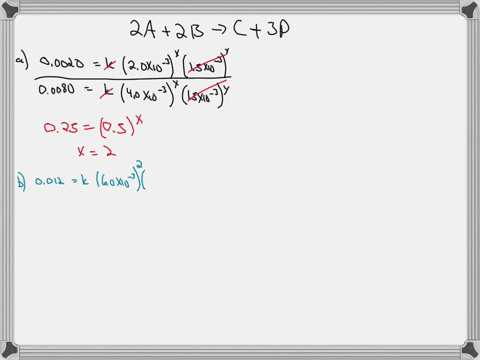 2A + 2B → C + 3D
a) 0.0020 = k (2.0×10⁻³)ˣ (1.5×10⁻³)ʸ
0.0080 = k (4.0×10⁻³)ˣ (1.5×10⁻³)ʸ
0.25 = (0.5)ˣ
x = 2
b) 0.012 = k (6.0×10⁻³)² (